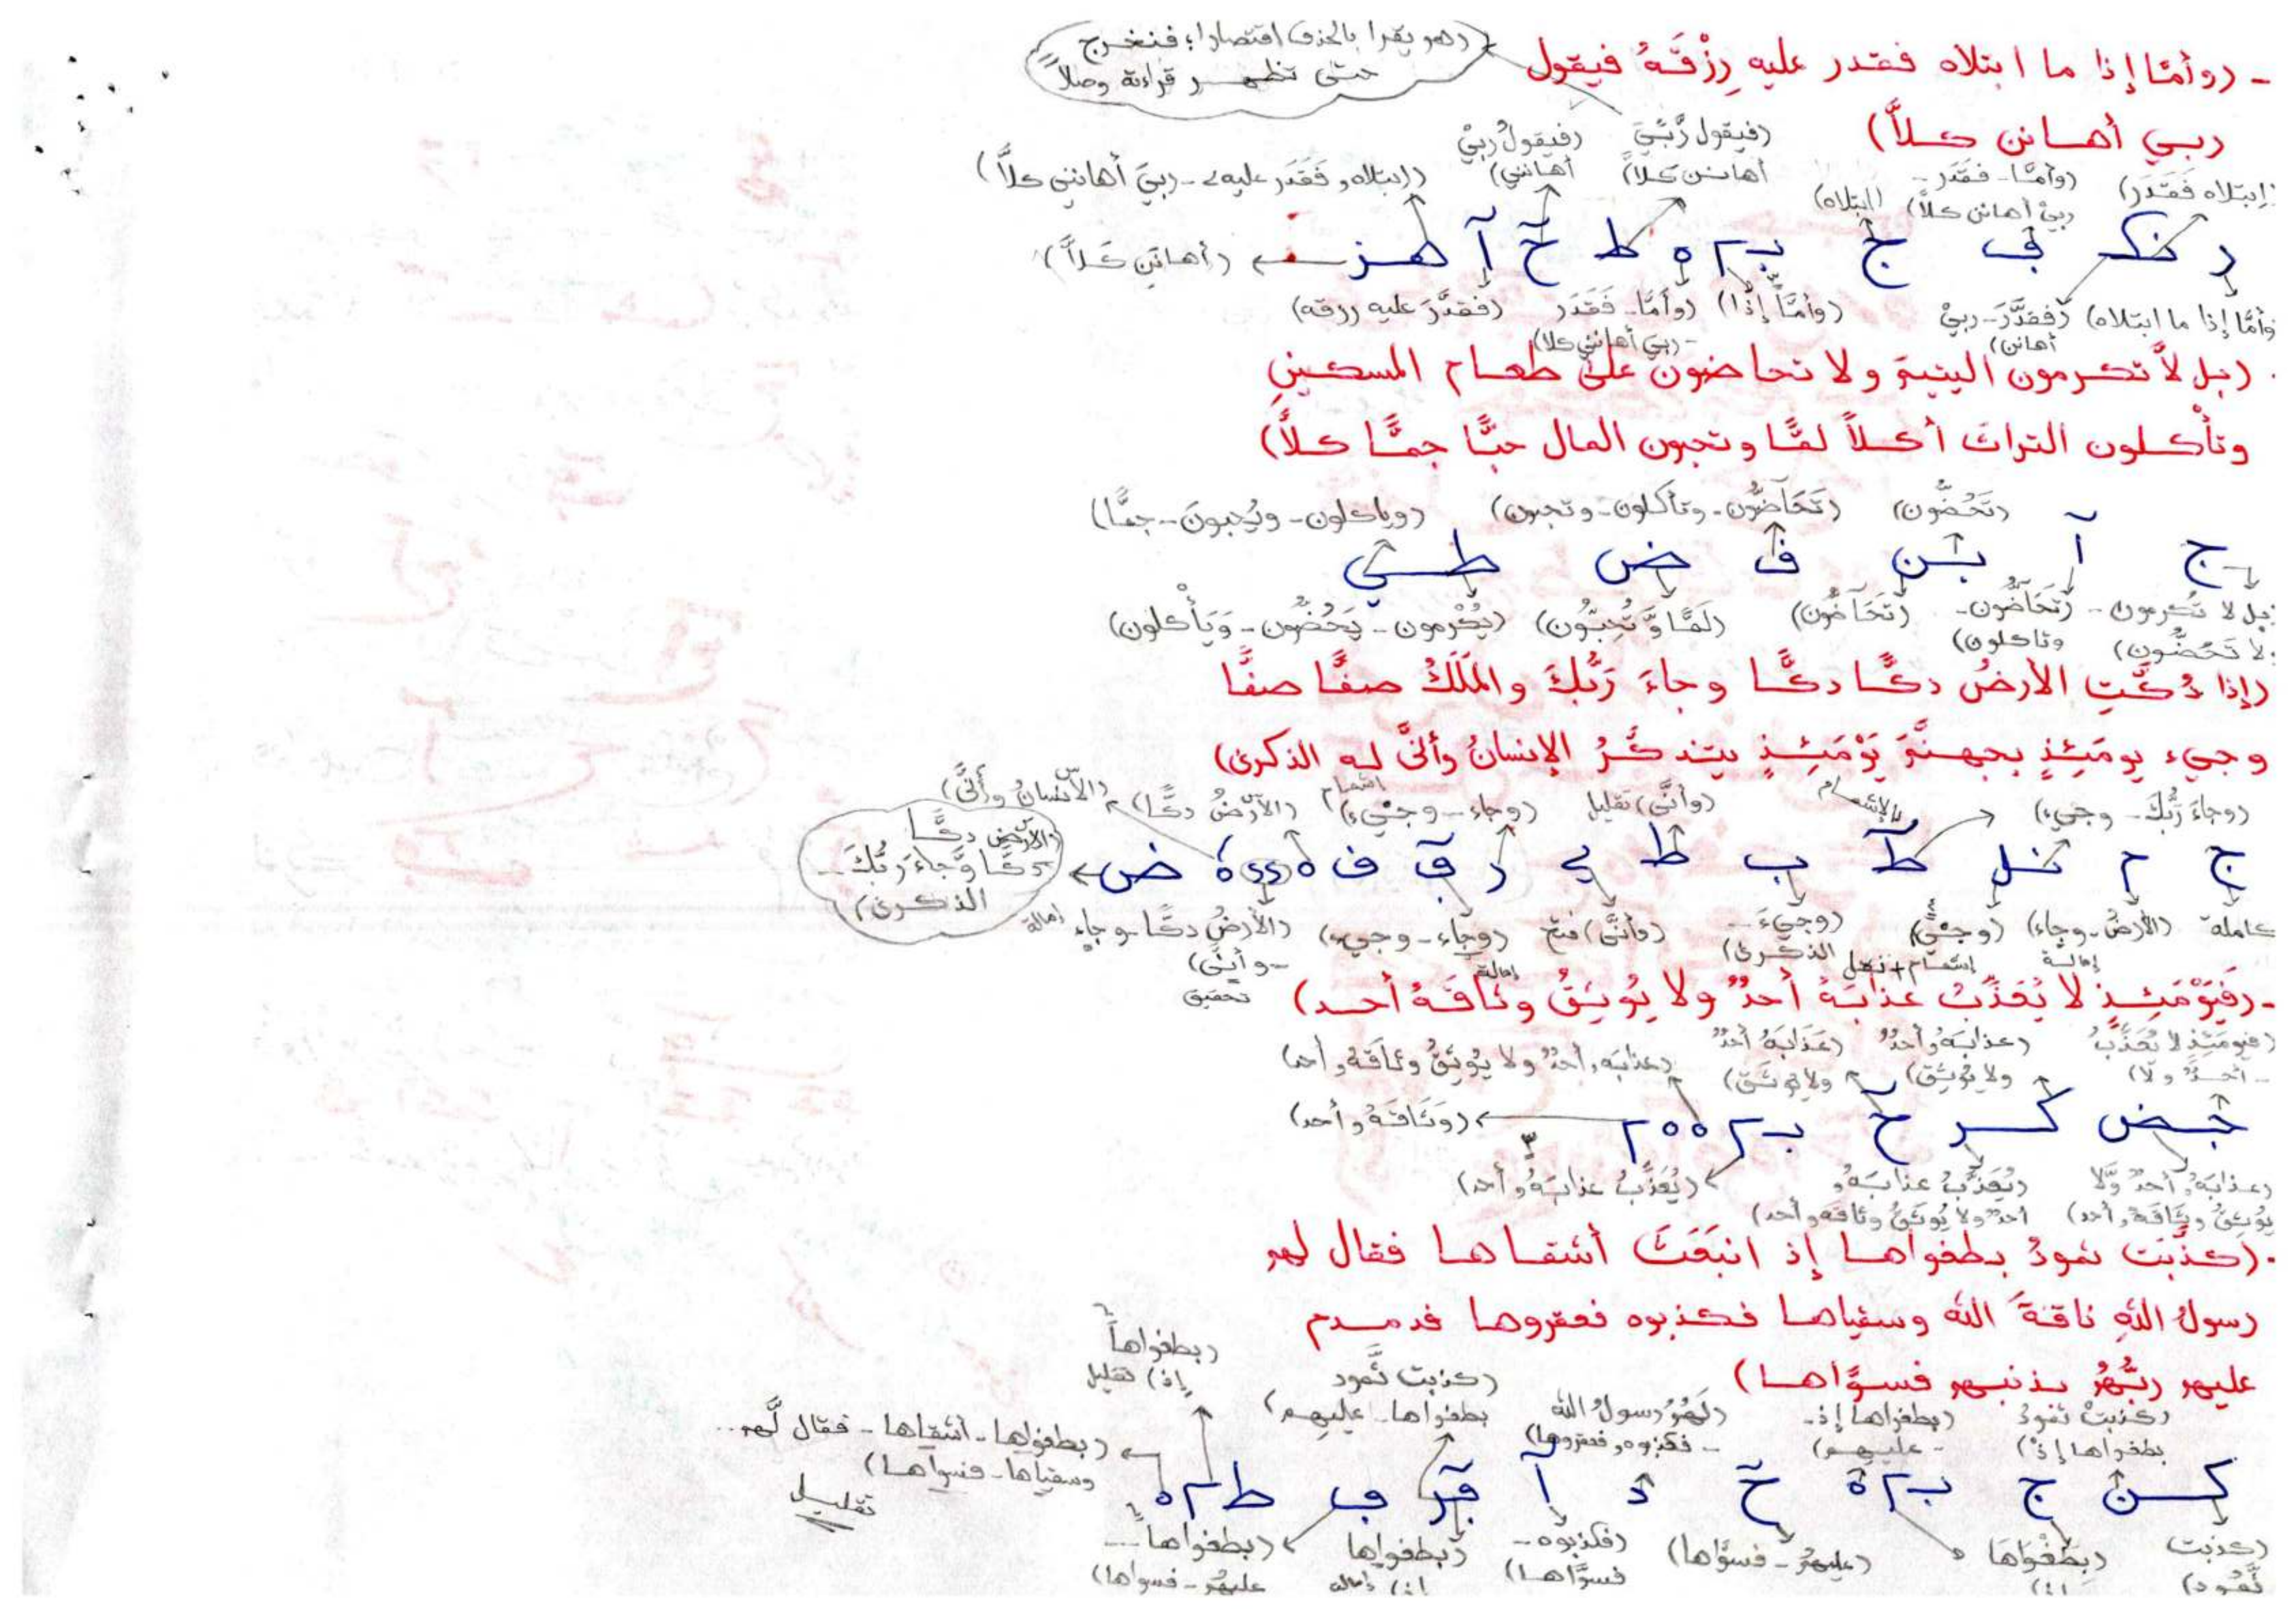 (وهو يقرا بالحذف اقتصارا؛ فنخرج
حتى تظهر قراءته وصلاً
- (وأمّا إذا ما ابتلاه فقدر عليه رِزْقَهُ فيقول
ربي أهانن كلاَّ)
(فيقول رَّبِّيَ
أهانن كَلاَّ)
(فيقولُ ربيْ
أهانني)
(ابتلاه، فَقَدَر عليه - ربيَ أهانني كلاَّ)
(ابتلاه فَقَدَر)
(وأمَّا - فقدَر -
ربيْ أهانن كلاَّ)
(ابتلاه)
د نکـ ف ج بـ م ه ط حٓ آ هـز
(أهانَنِ كَلاَّ)
وأمَّا إذا ما ابتلاه)
(فقدَّرَ - ربيْ
أهانن)
(وأمَّا إذا)
(وأمَّا - فَقَدَر
- ربيَ أهانني كلا)
(فقدَّرَ عليه رزقه)
(بل لاَّ تكرمون اليتيمَ ولا تحاضون على طعام المسكينِ
وتأْكلون التراثَ أكلاً لمًّا وتحبون المال حبًّا جمًّا كلاَّ)
(تَحُضُّون)
(تَحَاضُّون - وتأكلون - وتحبون)
(وياكلون - ويُحِبونَ - جمًّا)
ج آ بـن ف ض طـي
بل لا تُكرمون -
لا تَحُضُّون)
(تَحَاضُّون -
وتاكلون)
(تَحَاضُّون)
(لَمًّا وَّتُحِبُّون)
(يُكْرمون - يَحُضُّون - وَيَأْكلون)
(إذا دُكَّتِ الأرضُ دكًّا دكًّا وجاءَ رَبُّكَ والمَلَكُ صفًّا صفًّا
وجيء يومَئِذٍ بجهنَّمَ يَوْمَئِذٍ يتذكَّرُ الإنسانُ وأنَّى له الذكرى)
(وجاءَ رَّبُّكَ - وجيء)
بالإشمام
(وأنَّى) تقليل
(وجاء - وجيء) اشمام
(الأرْضُ دكًّا)
(الأنسانُ وأنَّى)
ج م نـل طٓ ب ط ي د قٓ ف ه ه ض
(الأرض دكًّا
دكًّا وَّجاءَ رَبُّكَ -
الذكرى)
كاملة
(الأرضُ - وجاء)
إمالة
(وجيء)
إشمام + نقل
(وجيءَ -
الذكرى)
(وأنَّى) فتح
(وجاء - وجيء)
إمالة
(الأرضُ دكًّا - وجاء إمالة
- وأنَّى)
تحقيق
- (فَيَوْمَئِذٍ لا يُعَذِّبُ عَذَابَهُ أحدٌ ولا يُوثِقُ وثاقَهُ أحد)
(فيومَئِذٍ لا يُعَذَّبُ
- أحدٌ ولا)
(عذابَهُ أحدٌ
ولا يُوثِق)
(عَذَابَهُ أحدٌ
ولا يوثَق)
(عذابَه، أحدٌ ولا يُوثِقُ وثاقَهُ، أحد)
جـض كـر حٓ بـ م ه ه م
(وَثَاقَهُ، أحد)
(عذابَهُ، أحدٌ وَّلا
يُوثِقُ وثاقَهُ، أحد)
(يُعَذَّبُ عذابَهُ،
أحدٌ ولا يُوثَقُ وثاقه، أحد)
(يُعَذِّبُ عذابَهُ، أحد)
- (كذَّبَت ثمودُ بطغواها إذ انبَعَثَ أشقاها فقال لهم
رسولُ اللهِ ناقةَ الله وسقياها فكذبوه فعقروها فدمدم
عليهم ربُّهُمْ بذنبهم فسوَّاها)
(كذبتْ ثمودُ
بطغواها إذْ)
(بطغواها إذ -
- عليهم)
(لَهُمُ رسولُ الله
- فكذبوه، فعقروها)
(كذبت ثَّمود
بطغواها - عليهم)
(بطغواها
إذ) تقليل
(بطغواها - أشقاها - فقال لَّهم..
وسقياها - فسواها)
تقليل
كـن ج بـ م ه حٓ د آ قٓر ف ط م ه
(كذبت
ثَّمود)
(بِطَغْوَاهَا
إذ)
(عليهُمُ - فسوَّاها)
(فكذبوه -
فسوَّاها)
(بطغواها
إذ) إمالة
(بطغواها -
عليهُم - فسواها)